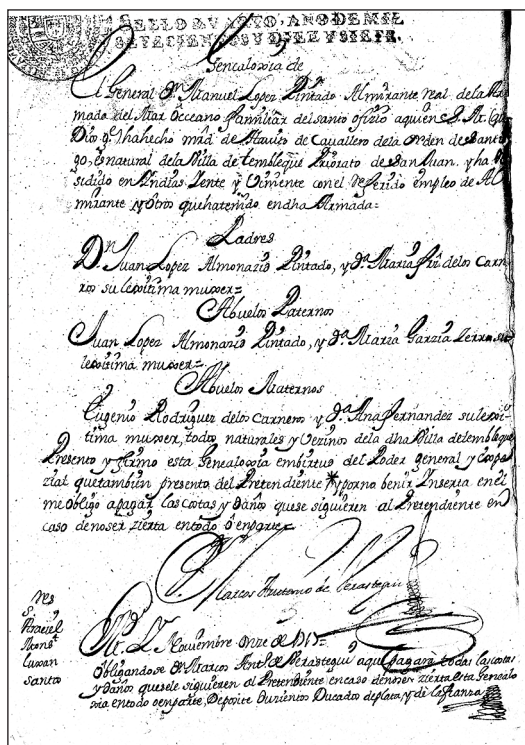 SELLO QVARTO, AÑO DE MIL
SETECIENTOS Y DIEZ Y SIETE.
Genealoxia de
El General Dn Manuel Lopez Pintado Almirante real de la Ar
mada del Mar Occeano familiar del santo ofizio aquien S. M. que
Dios ge. ha hecho mrd de Hauito de Cauallero dela orden de Santia
go, Es natural dela Villa de tembleque Priorato de San Juan. y ha re
sidido en Yndias Yente y Viniente con el referido empleo de Al
mirante y otros que hatenido en dha Armada=
Padres
Dn. Juan Lopez Almonazid Pintado, y Da. Maria Rz delos Carne
ros su lexitima muxer=
Abuelos Paternos
Juan Lopez Almonazid Pintado, y Da. Maria Garzia Zerra su
lexitima muxer=
Abuelos Maternos
Eugenio Rodriguez delos Carneros y Da. Ana fernandez su lexi-
tima muxer, todos naturales y Vezinos dela dha Villa de tembleque
Presento y firmo esta Genealoxia en birtud del Poder general y espe
zial que tambien presento del Pretendiente y por no benir Inserta en el
me obligo apagar las costas y daños quese siguieren al Pretendiente en
caso denoser zierta entodo ó enparte=
Marcos de Verastegui
res
S.
Santos
Md. Nouiembre onze de 1717=
Obligandose Dn Marcos Anto. de Verastegui aque pagara todas las costas
y daños quesele siguieren al Pretendiente encaso denoser zierta esta Genealo
xia entodo oenparte, Deposite Ducados deplata, y dè la fianza